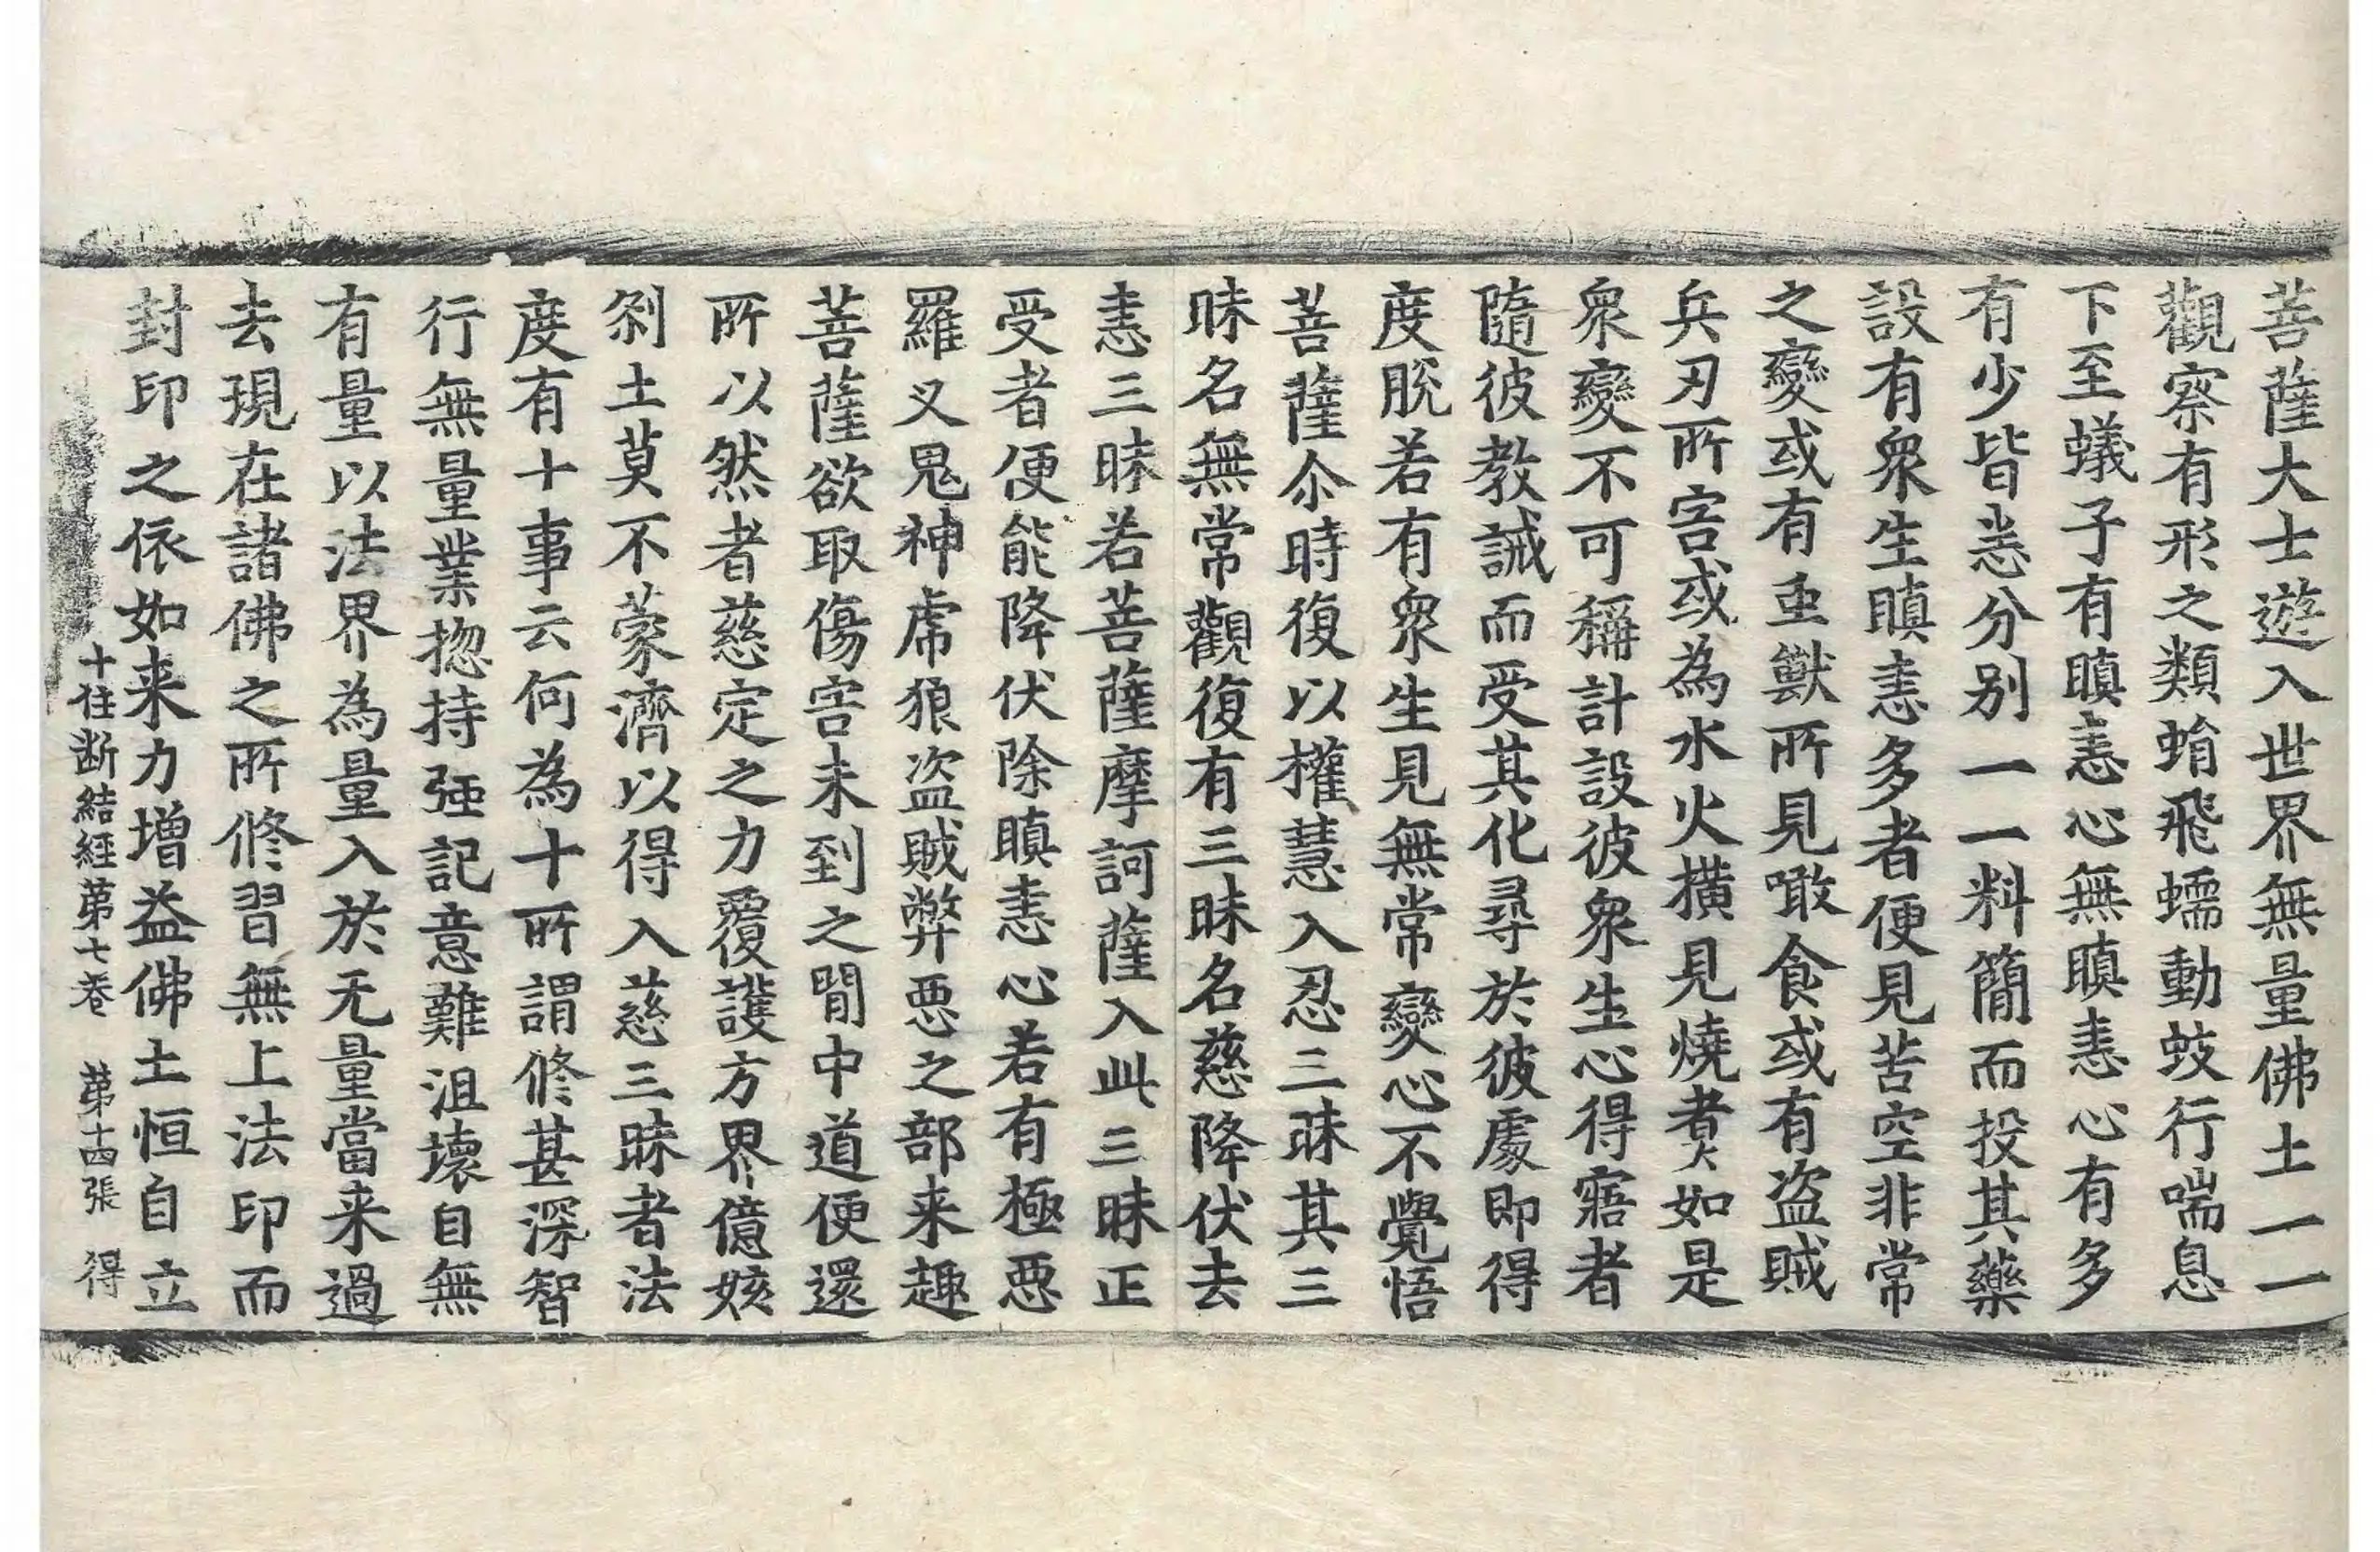 菩薩大士遊入世界無量佛土一一
觀察有形之類蜎飛蠕動蚑行喘息
下至蟻子有瞋恚心無瞋恚心有多
有少皆悉分別一一料簡而投其藥
設有衆生瞋恚多者便見苦空非常
之變或有重獸所見噉食或有盜賊
兵刃所害或為水火横見燒煑如是
衆變不可稱計設彼衆生心得寤者
隨彼教誡而受其化尋於彼處即得
度脫若有衆生見無常變心不覺悟
菩薩尒時復以權慧入忍三昧其三
昧名無常觀復有三昧名慈降伏去
恚三昧若菩薩摩訶薩入此三昧正
受者便能降伏除瞋恚心若有極惡
羅叉鬼神虎狼盜賊弊惡之部来趣
菩薩欲取傷害未到之間中道便還
所以然者慈定之力覆護方界億姟
刹土莫不蒙濟以得入慈三昧者法
度有十事云何為十所謂修甚深智
行無量業揔持强記意難沮壞自無
有量以法界為量入於无量當来過
去現在諸佛之所修習無上法印而
封印之依如来力增益佛土恒自立
十住断結經第七卷 第十四張 得